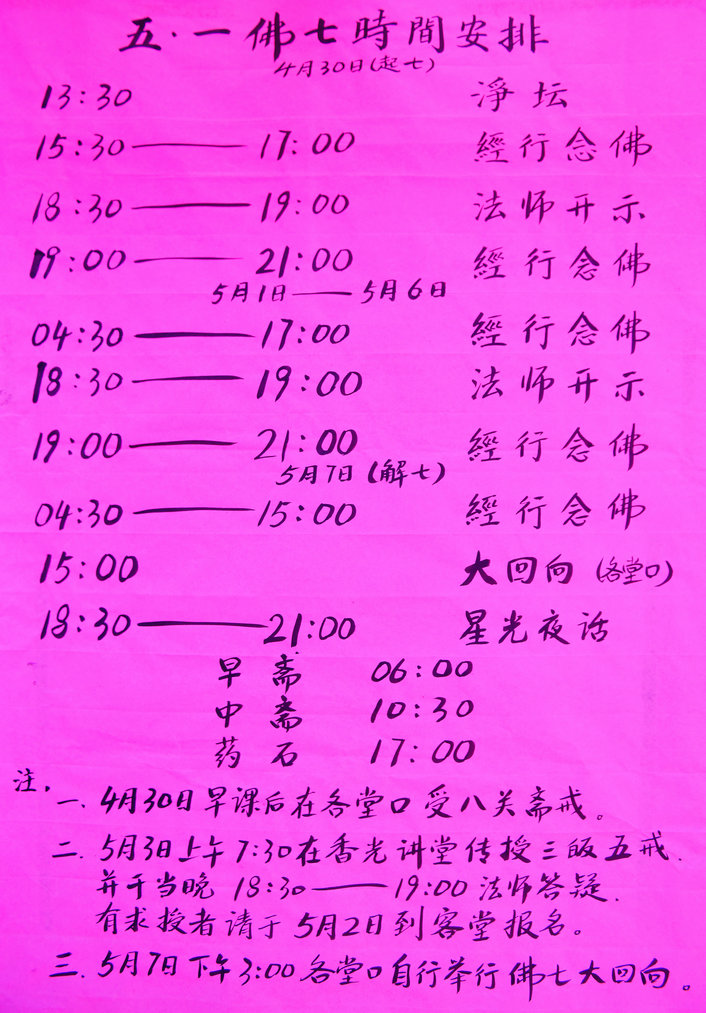 五·一佛七時間安排
4月30日(起七)
13:30 淨坛
15:30——17:00 經行念佛
18:30——19:00 法师开示
19:00——21:00 經行念佛
5月1日——5月6日
04:30——17:00 經行念佛
18:30——19:00 法师开示
19:00——21:00 經行念佛
5月7日(解七)
04:30——15:00 經行念佛
15:00 大回向(各堂口)
18:30——21:00 星光夜话
早斋 06:00
中斋 10:30
药石 17:00
注.
一.4月30日早课后在各堂口受八关斋戒。
二.5月3日上午7:30在香光讲堂传授三皈五戒.
并于当晚18:30——19:00法师答疑.
有求授者请于5月2日到客堂报名。
三.5月7日下午3:00各堂口自行举行佛七大回向。